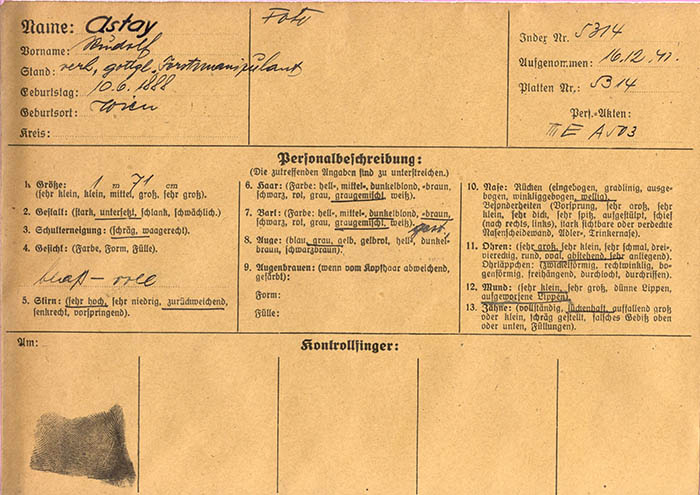 Name: Astay
Vorname: Rudolf
Stand: verh, gottgl. Forstmanipulant
Geburtstag: 10.6.1888
Geburtsort: Wien
Kreis:
Foto
Index Nr. 5314
Aufgenommen: 16.12.41.
Platten Nr.: 5314
Pers.-Akten:
III E A 503
Personalbeschreibung:
(Die zutreffenden Angaben sind zu unterstreichen.)
1. Größe: 1 m 71 cm
(sehr klein, klein, mittel, groß, sehr groß).
2. Gestalt: (stark, untersetzt, schlank, schwächlich).
3. Schulterneigung: (schräg, waagerecht).
4. Gesicht: (Farbe, Form, Fülle).
blaß - voll
5. Stirn: (sehr hoch, sehr niedrig, zurückweichend,
senkrecht, vorspringend).
6. Haar: (Farbe: hell-, mittel-, dunkelblond, -braun,
schwarz, rot, grau, graugemischt, weiß).
7. Bart: (hell-, mittel-, dunkelblond, -braun,
schwarz, rot, grau, graugemischt, weiß).
8. Auge: (blau, grau, gelb, gelbrot, hell-, dunkel-
braun, schwarzbraun).
9. Augenbrauen: (wenn vom Kopfhaar abweichend,
gefärbt):
Form:
Fülle:
10. Nase: Rücken (eingebogen, gradlinig, ausge-
bogen, winkliggebogen, wellig).
Besonderheiten (Vorsprung, sehr groß, sehr
klein, sehr dick, sehr spitz, aufgestülpt, schief
(nach rechts, links), stark sichtbare oder verdeckte
Nasenscheidewand, Adler-, Trinkernase).
11. Ohren: (sehr groß, sehr klein, sehr schmal, drei-,
viereckig, rund, oval, abstehend, sehr anliegend).
Ohrläppchen: (zwickelförmig, rechtwinklig, bo-
genförmig, freihängend, durchlocht, durchrissen).
12. Mund: (sehr klein, sehr groß, dünne Lippen,
aufgeworfene Lippen).
13. Zähne: (vollständig, lückenhaft, auffallend groß
oder klein, schräg gestellt, falsches Gebiß oben
oder unten, Füllungen).
Am:
Kontrollfinger: